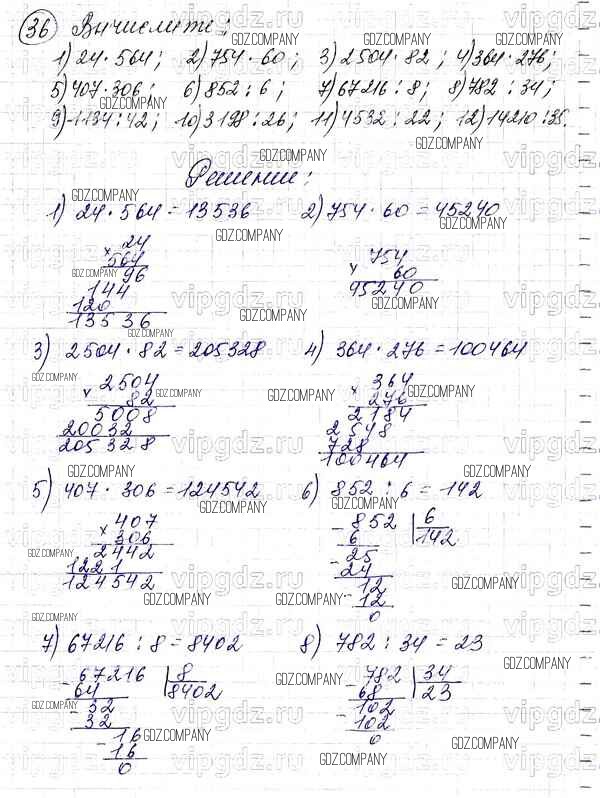 36 Вычислите:
1) 24 · 564; 2) 754 · 60; 3) 2504 · 82; 4) 364 · 276;
5) 407 · 306; 6) 852 : 6; 7) 67216 : 8; 8) 782 : 34;
9) 1134 : 42; 10) 3198 : 26; 11) 4532 : 22; 12) 14210 : 35.
Решение:
1) 24 · 564 = 13536 2) 754 · 60 = 45240
24 754
× 564 × 60
96 45240
144
120
13536
3) 2504 · 82 = 205328 4) 364 · 276 = 100464
× 2504 × 364
82 276
5008 2184
20032 2548
205328 728
100464
5) 407 · 306 = 124542 6) 852 : 6 = 142
× 407 - 852 6
306 6 142
2442 - 25
1221 24
124542 - 12
12
0
7) 67216 : 8 = 8402 8) 782 : 34 = 23
- 67216 8 - 782 34
64 8402 68 23
- 32 - 102
32 102
- 16 0
16
0
GDZ.COMPANY
vipgdz.ru